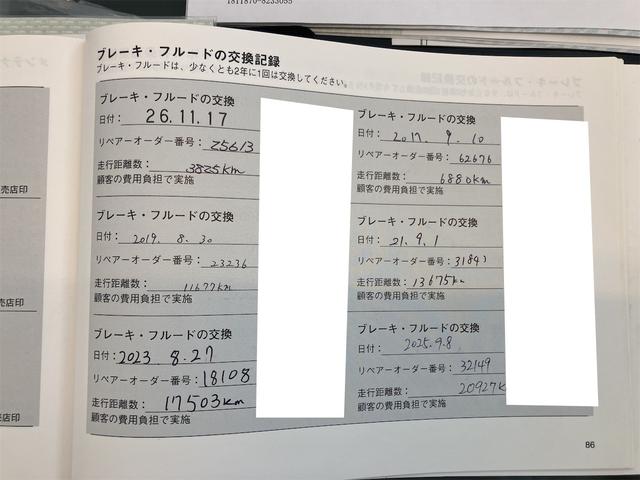 1811870-8233055
ブレーキ・フルードの交換記録
ブレーキ・フルードは、少なくとも2年に1回は交換してください。
ブレーキ・フルードの交換
日付：26.11.17
リペアーオーダー番号：25613
走行距離数：3825km
顧客の費用負担で実施
ブレーキ・フルードの交換
日付：2017. 9. 10
リペアーオーダー番号：62676
走行距離数：6880km
顧客の費用負担で実施
ブレーキ・フルードの交換
日付：2019. 8. 30
リペアーオーダー番号：23236
走行距離数：11677km
顧客の費用負担で実施
ブレーキ・フルードの交換
日付：21. 9. 1
リペアーオーダー番号：31841
走行距離数：13675km
顧客の費用負担で実施
ブレーキ・フルードの交換
日付：2023 8.27
リペアーオーダー番号：18108
走行距離数：17503km
顧客の費用負担で実施
ブレーキ・フルードの交換
日付：2025.9.8
リペアーオーダー番号：32149
走行距離数：20927k
顧客の費用負担で実施
売店印
売店印
売店印
86